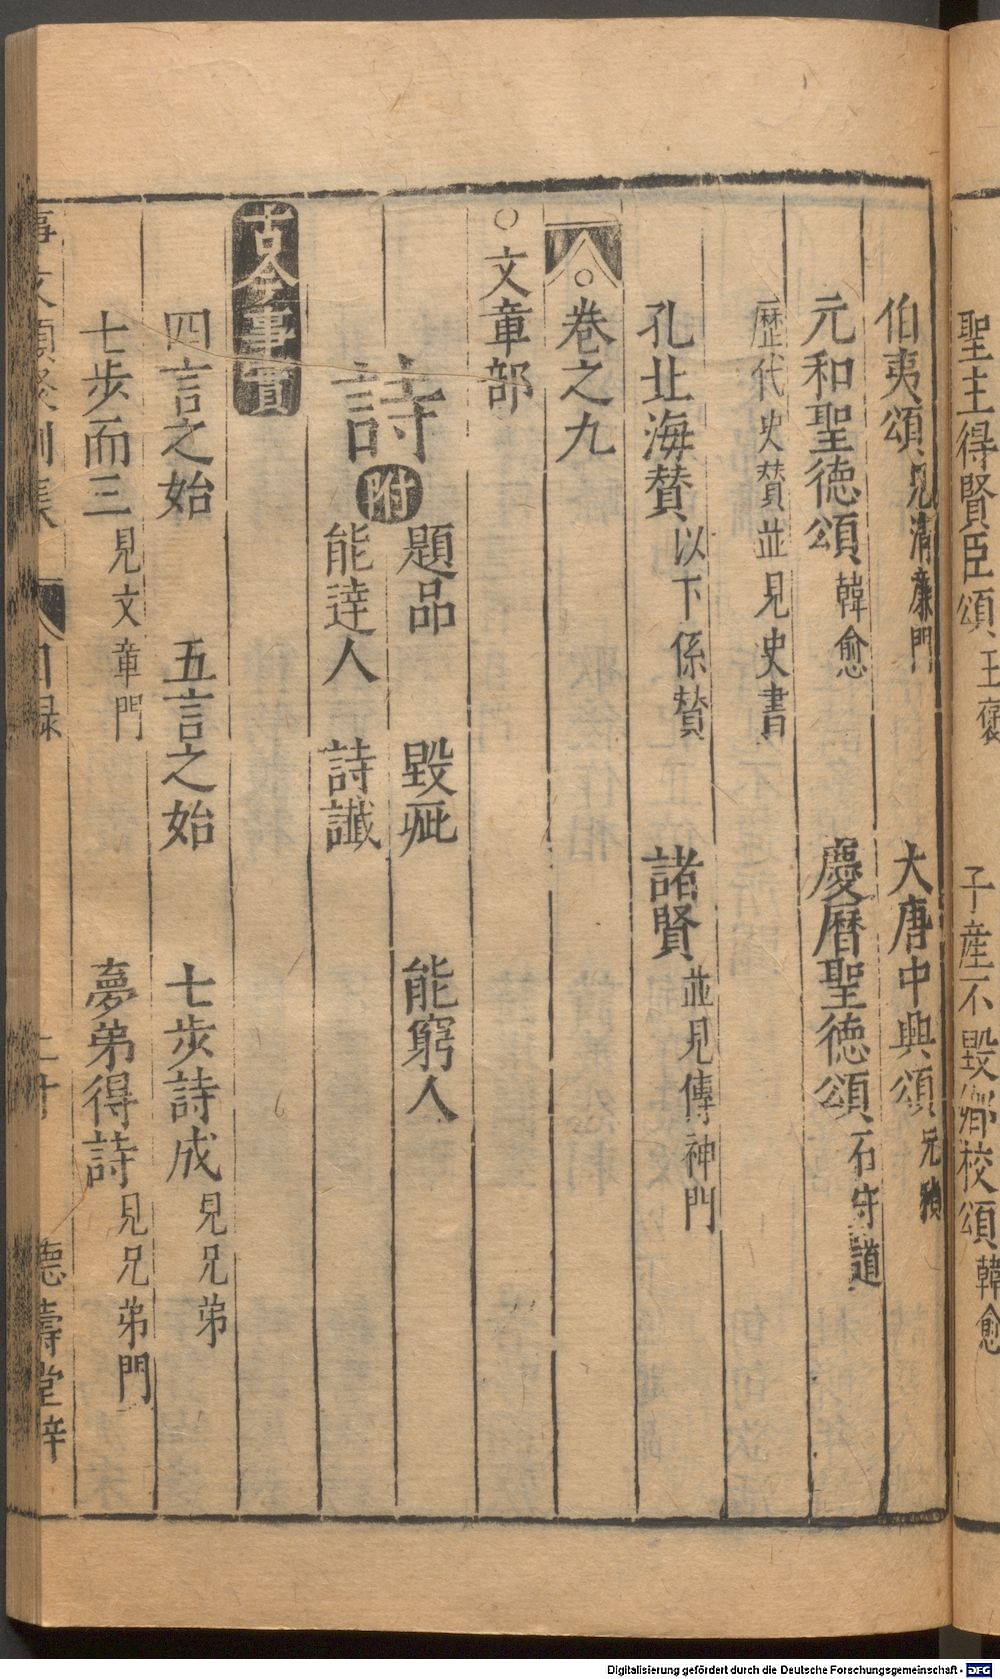 聖主得賢臣頌 王褒 子產不毀鄉校頌 韓愈
伯夷頌 見清廉門 大唐中興頌 元稹
元和聖德頌 韓愈 慶曆聖德頌 石守道
歷代史賛並見史書
孔北海賛 以下係賛 諸賢 並見傳神門
○卷之九
○文章部
題品 毀疵 能窮人
詩 附
能達人 詩讖
古今事實
四言之始 五言之始 七步詩成 見兄弟
七步而三 見文章門 夢弟得詩 見兄弟門
事文類聚別集 目録 二十 德壽堂梓
Digitalisierung gefördert durch die Deutsche Forschungsgemeinschaft - DFG